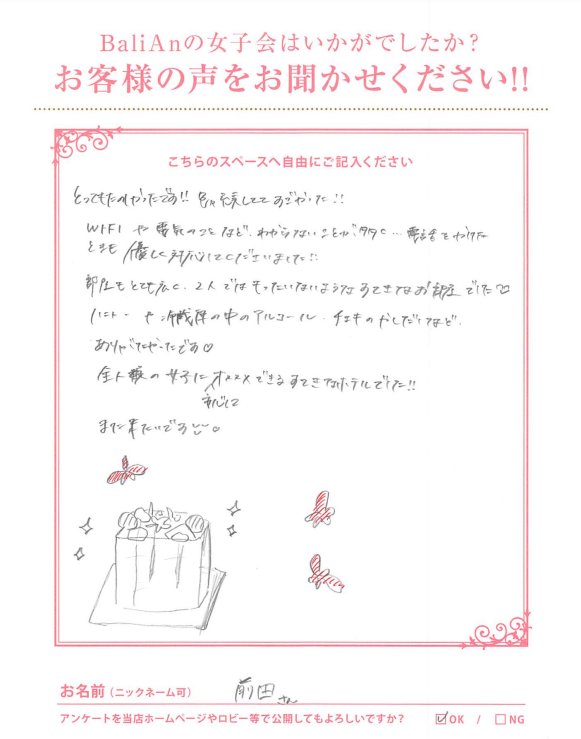 BaliAnの女子会はいかがでしたか?
お客様の声をお聞かせください!!
こちらのスペースへ自由にご記入ください
とってもたのしかったです!! すごかった!!
WIFIや電気のことなど、わからないことが多々く…電話をかけた
ときも優しく対応してくださいました!!
部屋もとても広く、2人ではもったいないようなすてきなお部屋でした♡
や冷蔵庫の中のアルコール、チェキのかしだしなど、
ありがたかったです♡
全人類の女子にオススメできるすてきなホテルでした!!
安心して
また来たいです
お名前(ニックネーム可) 前田さん
アンケートを当店ホームページやロビー等で公開してもよろしいですか? ☑OK / □NG